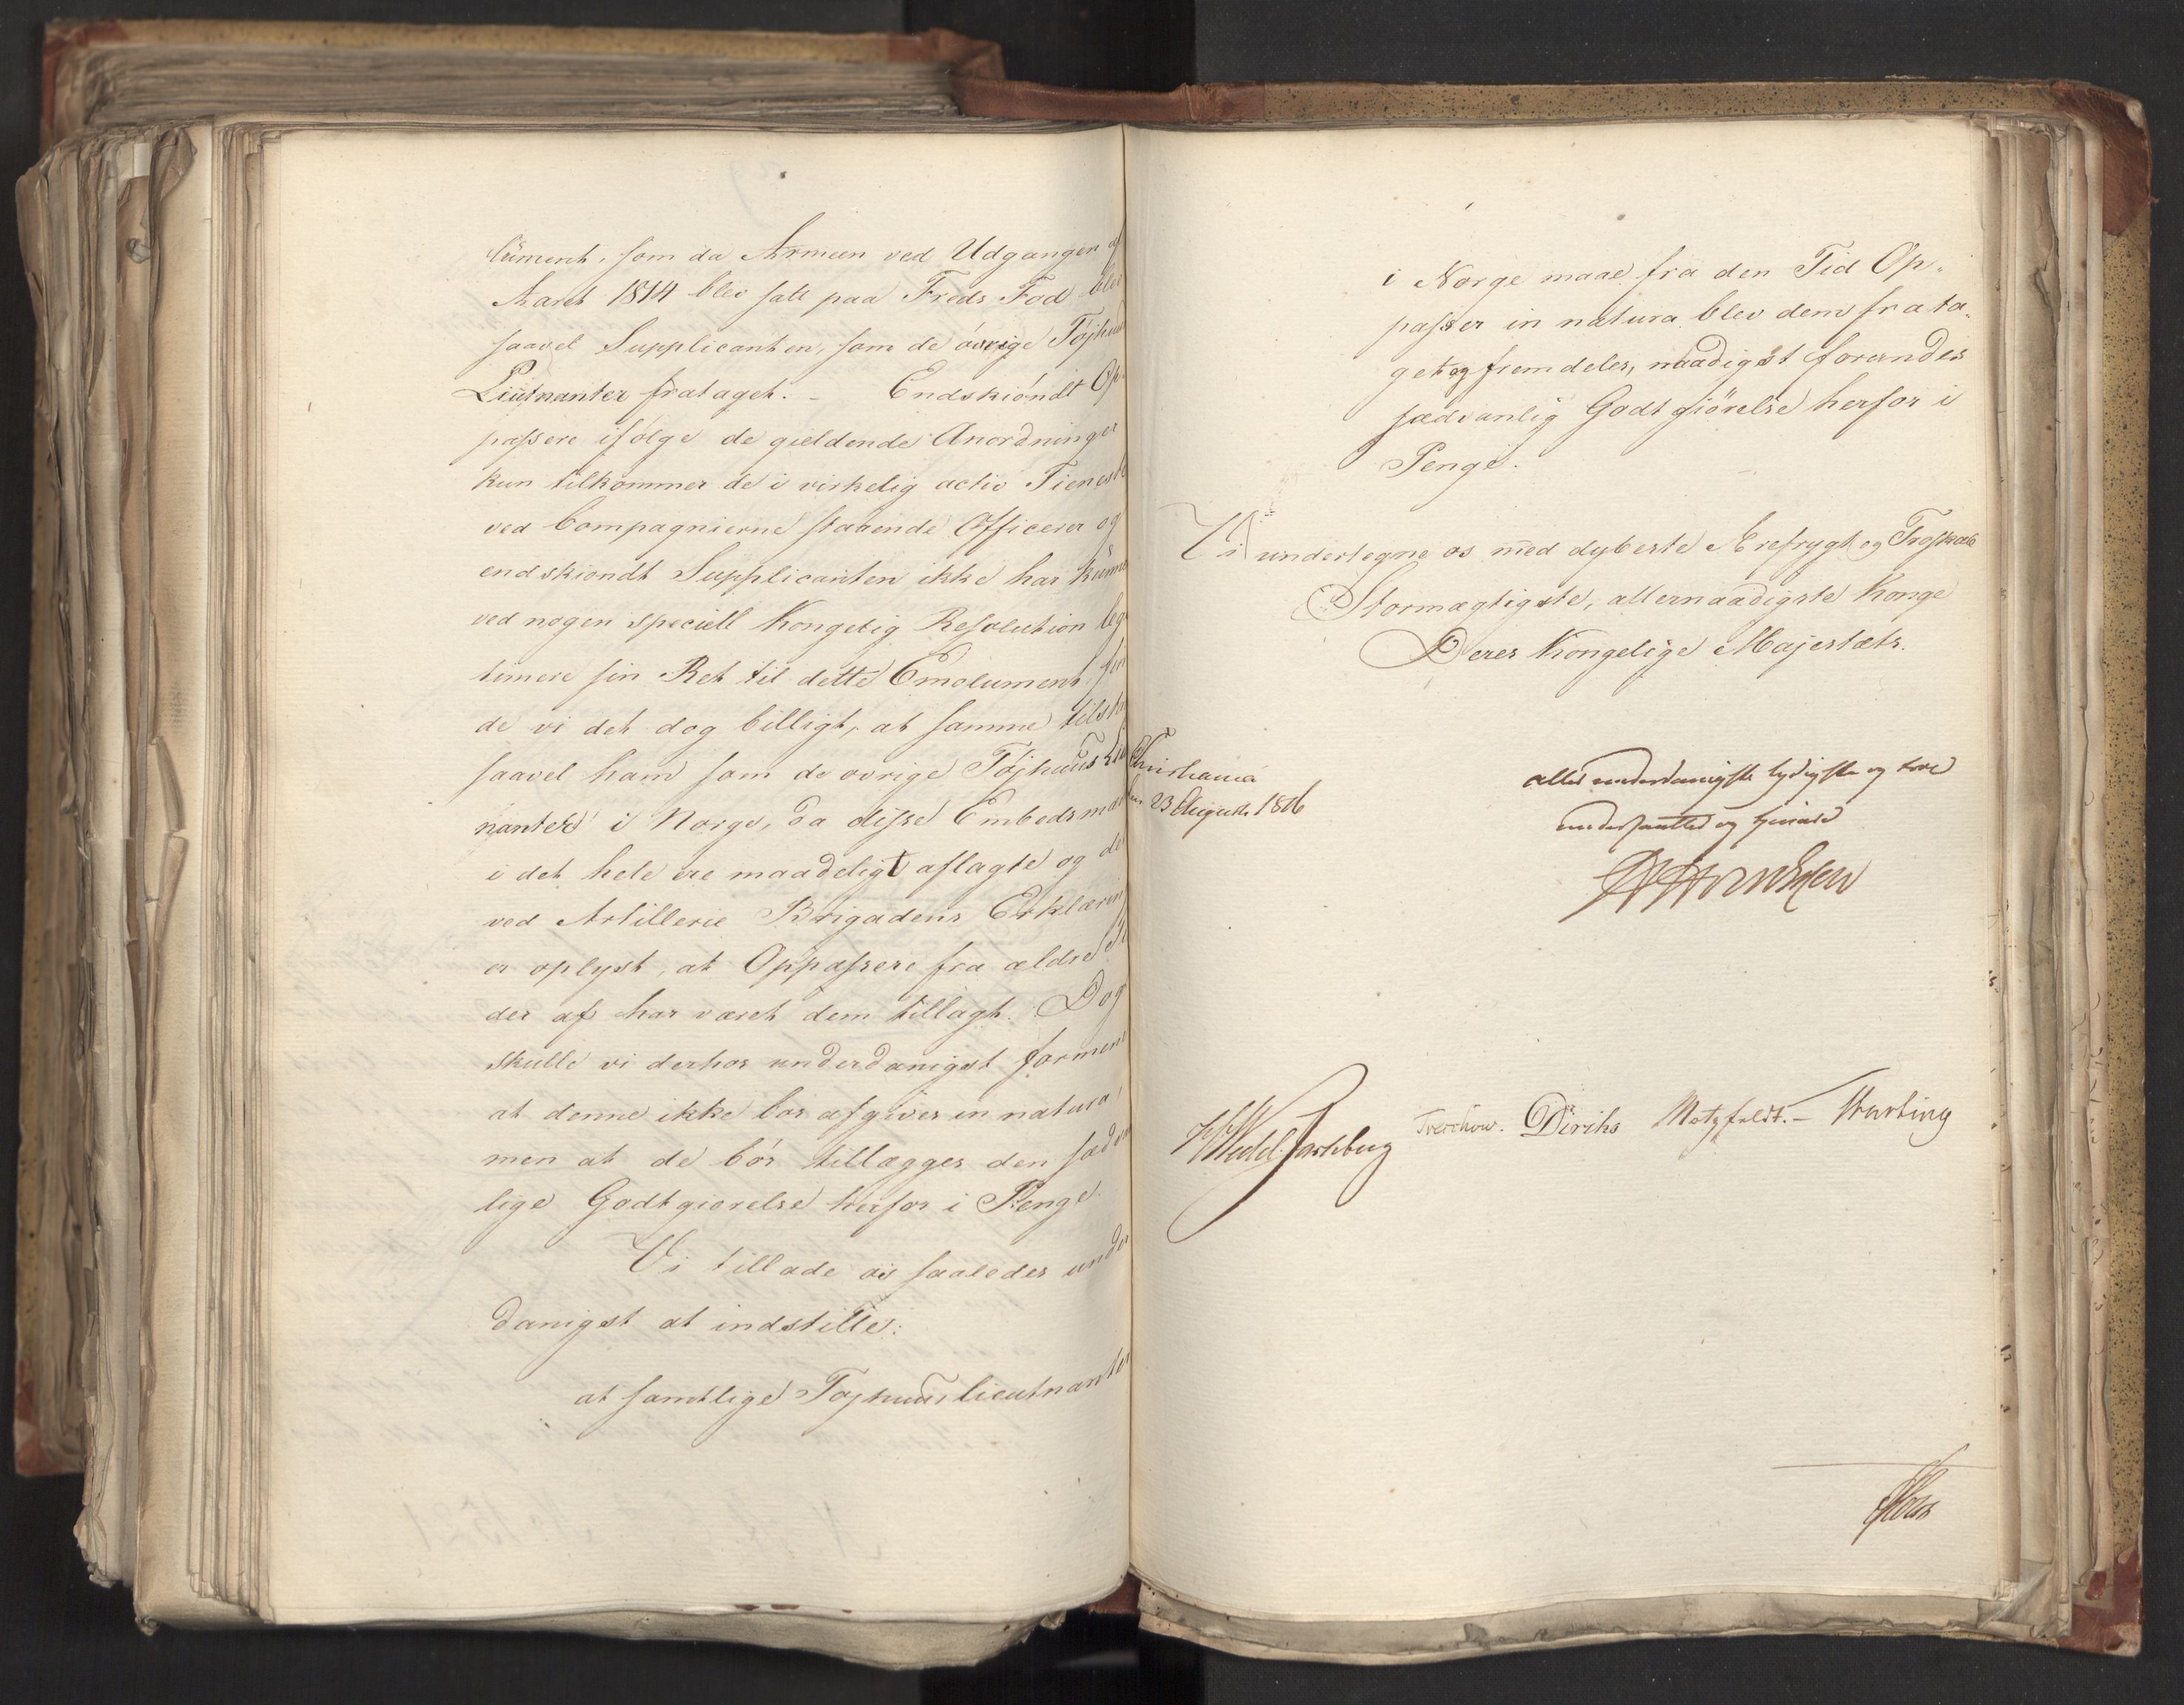 lument, som da Armeen ved Udgangen af
Aaret 1814 blev satt paa Freds Fod blev
saavel Supplicanten, som de øvrige Tøjhuus
Lieutnanter frataget. – Endskiøndt Op-
passere ifølge de gieldende Anordninger
kun tilkommer de i virkelig activ Tieneste
ved Compagnierne staaende Officerer og
endskiøndt Supplicanten ikke har kunne
ved nogen speciell Kongelig Resolution leg
timere sin Ret til dette Emolument fin
de vi det dog billigt, at samme tilst
saavel ham som de øvrige Tøjhuus Lieu
nanter i Norge, da disse Embedsmæn
i det hele ere maadeligt aflagte og det
ved Artillerie Brigadens Erklæring
er oplyst, at Oppassere fra ældre Ti
der af har været dem tillagt. Dog
skulle vi derhos underdanigst formene
at denne ikke bør afgives in natura
men at de bør tillægges den sædvan
lige Godtgiørelse herfor i Penge.
Vi tillade os saaledes under
danigst at indstille:
at samtlige Tøjhuuslieutnanter
i Norge maae fra den Tid Op-
passer in natura blev dem frata-
get og fremdeles, naadigst forundes
sædvanlig Godtgiørelse herfor i
Penge.
Vi undertegne os med dybeste Ærefrygt og Troskab
Stormægtigste, allernaadigste Konge
Deres Kongelige Majestæts.
Christiania
den 23 August 1816
allerunderdanigste lydigste og troe
undersaatter og tjenere
Wedel Jarlsberg Treschow. Diriks Motzfeldt. – Krefting